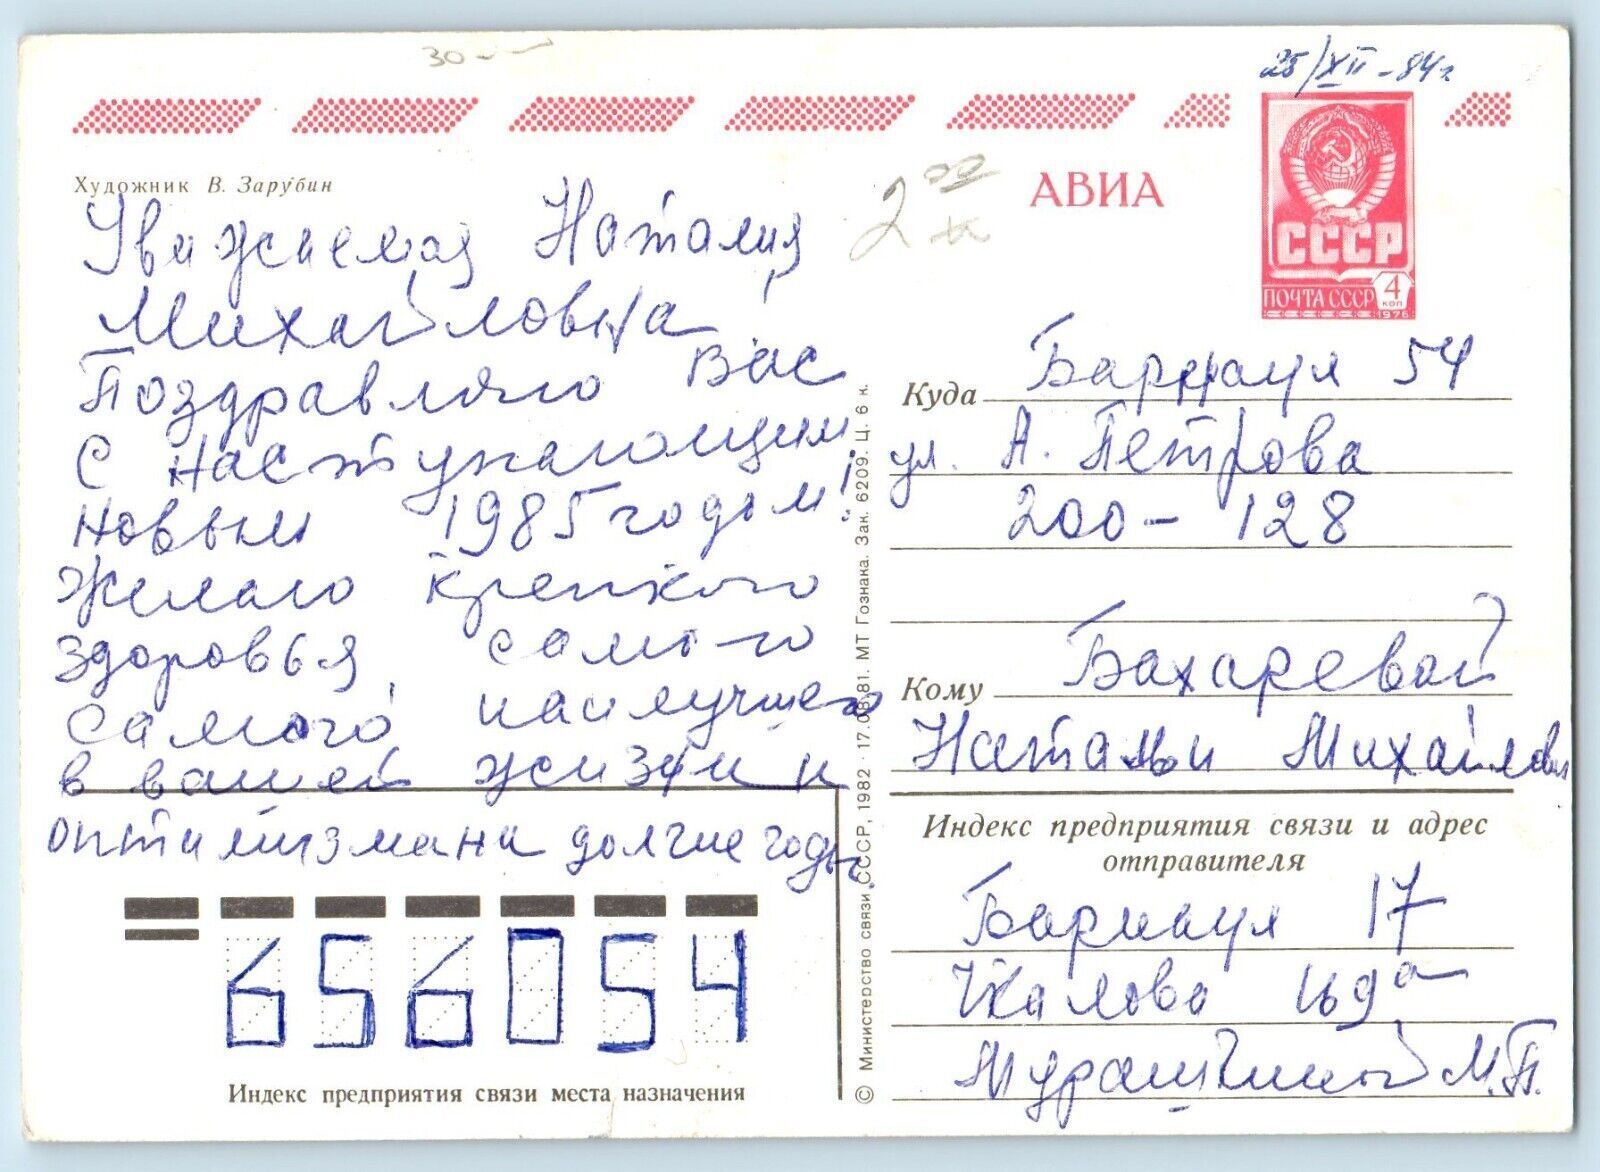 30 —
25/XII - 84 г
Художник В. Зарубин
АВИА
2 00
к
СССР
ПОЧТА СССР 4
КОП
1976
Уважаемая Наталия
Михайловна,
Поздравляю Вас
с наступающим
новым 1985 годом!
Желаю крепкого
здоровья, самого
самого наилучшего
в вашей жизни и
оптимизма на долгие годы.
Куда Барнаул 54
ул. А. Петрова
200 - 128
Кому Бахаревой
Натальи Михайловн
Индекс предприятия связи и адрес
отправителя
Барнаул 17
Чкалова
М.П.
656054
Индекс предприятия связи места назначения
© Министерство связи СССР, 1982 · 17.08.81. МТ Гознака. Зак. 6209. Ц. 6 к.